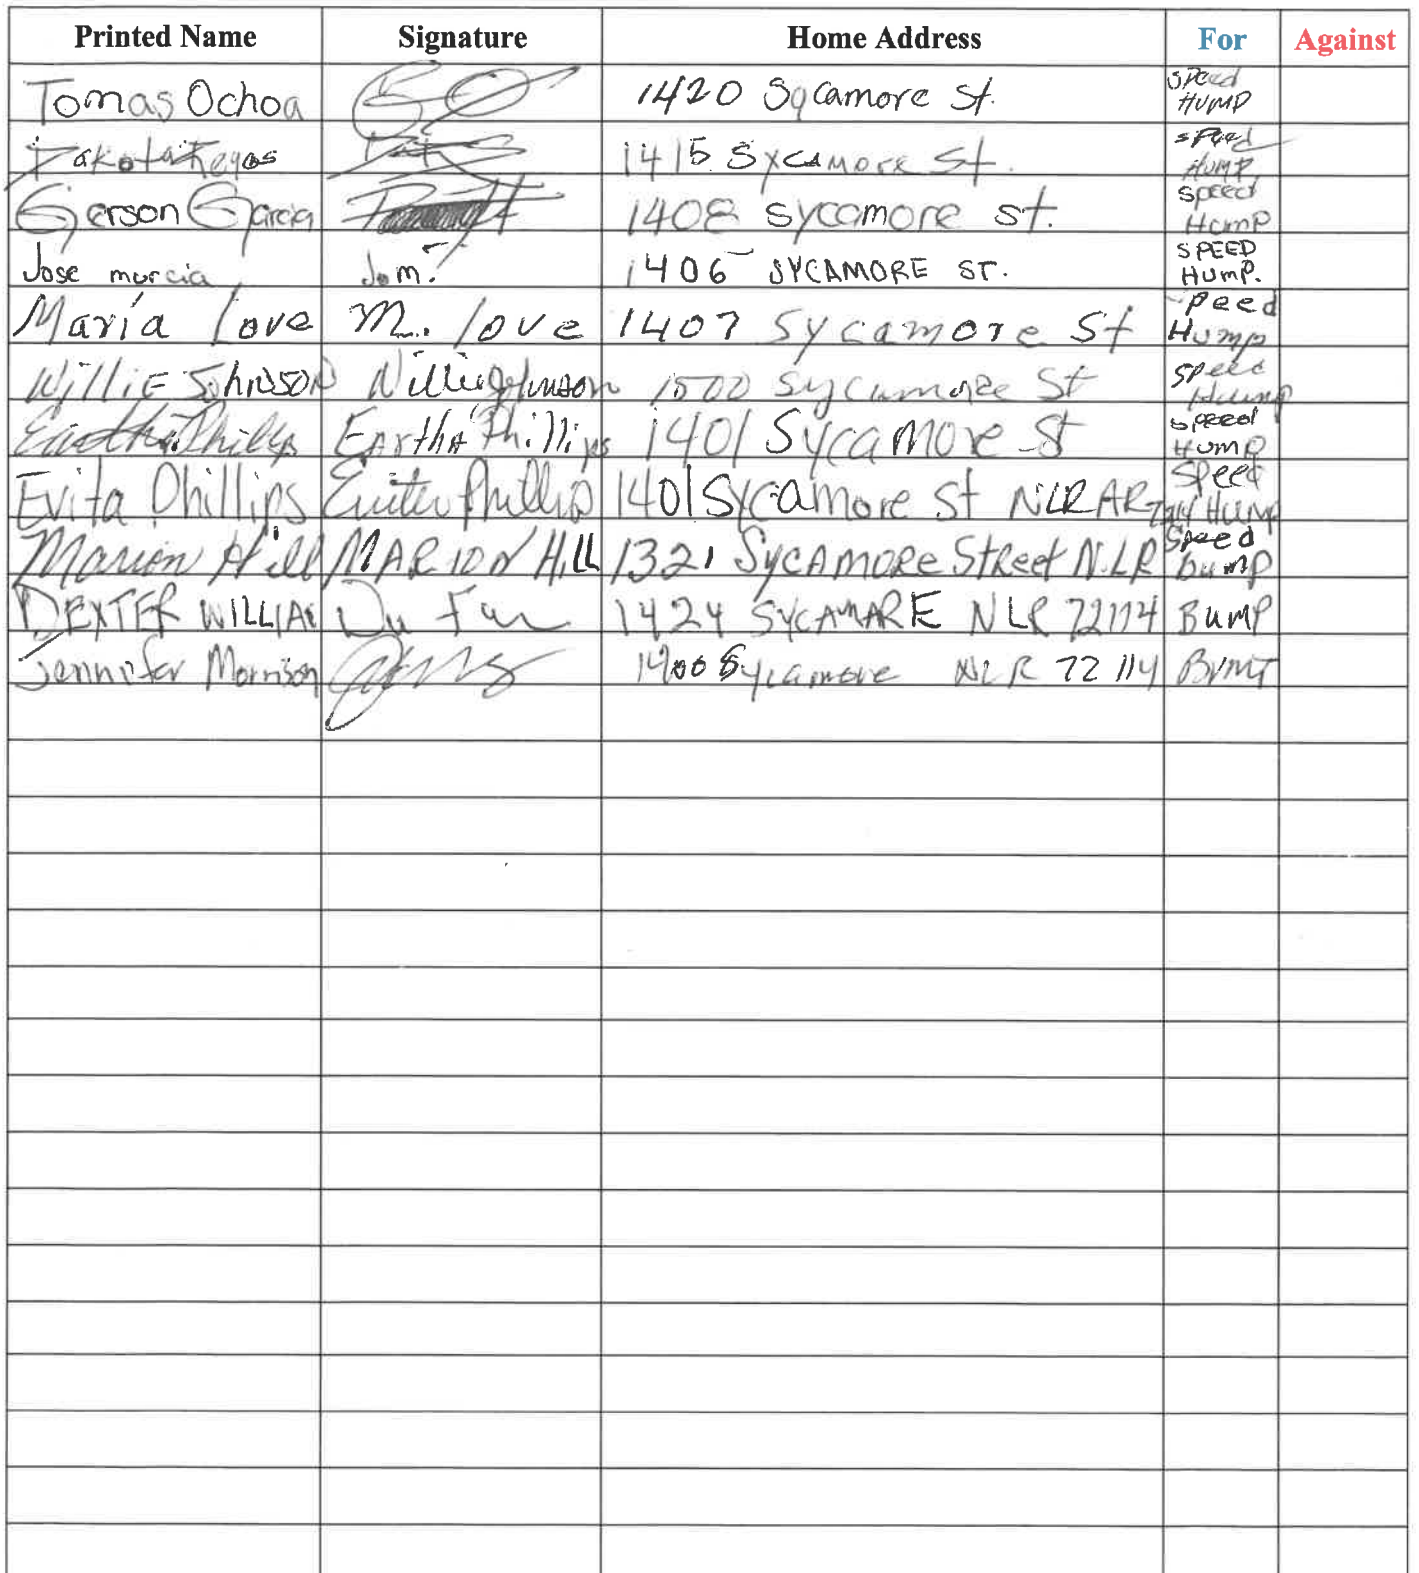 Printed Name Signature Home Address For Against
Tomas Ochoa 1420 Sycamore St. Speed HUMP
Dakota Reyas 1415 Sycamore St. Speed HUMP
Gerson Garcia 1408 sycamore st. speed Hump
Jose murcia Jom. 1406 SYCAMORE ST. SPEED HUMP.
María Love M. love 1407 Sycamore St peed Hump
Willie Johnson Willie Johnson 1500 Sycamore St speed Hump
Eartha Phillips Eartha Phillips 1401 Sycamore St speed Hump
Evita Phillips Evita Phillips 1401 Sycamore St NLR AR 72114 Speed Hump
Marion Hill MARION HILL 1321 Sycamore Street N.LR Speed bump
DEXTER WILLIAM 1424 SYCAMARE NLR 72114 Bump
Jennifer Morrison 1400 Sycamore NLR 72114